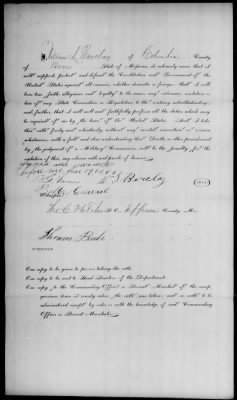 William L. Barclay of Columbia County
of Boone State of Missouri, do solemnly swear that I
will support, protect and defend the Constitution and Government of the
United States against all enemies, whether domestic or foreign; that I will
bear true faith, allegiance and loyalty to the same, any ordinance, resolution
of any State Convention or Legislature to the contrary notwithstanding;
and further, that I will well and faithfully perform all the duties which may
be required of me by the laws of the United States. And I take
this oath freely and voluntarily, without any mental reservation or evasion
whatsoever, with a full and clear understanding that Death, or other punishment
by the judgment of a Military Commission will be the penalty for the
violation of this my solemn oath and parole of honor.
before me
Barclay
General
Jefferson County, Mo
Thomas
One copy to be given to person taking the oath.
One copy to be sent to Head Quarters of the Department.
One copy to the Commanding Officer or Provost Marshal of the camp,
garrison, town or county where the oath was taken, such oath to be
administered except by or with the knowledge of said Commanding
Officer or Provost Marshal.